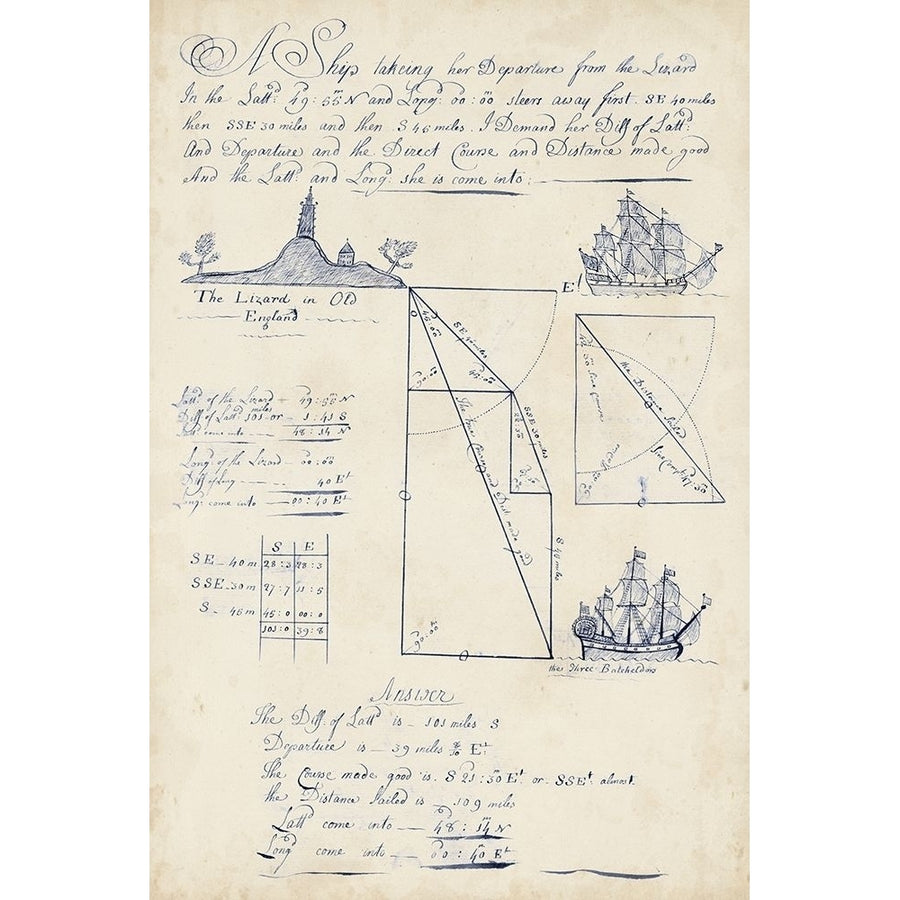 A Ship takeing her Departure from the Lizard
In the Latt:d 49:55 N and Long: 00:00 steers away first. SE 40 miles
then SSE 30 miles and then S 45 miles. I Demand her Diff of Latt:
And Departure and the Direct Course and Distance made good
And the Latt: and Long: she is come into:
The Lizard in Old
England
E:t
45:00
SE 40 miles
90:00
45:00
SSE 30 miles
The True Course and Dist made good
S 45 miles
90:00
the Distance sailed
Latt: of the Lizard 49:55 N
Diff of Latt: 101 miles or 1:41 S
Latt: come into 48:14 N
Long: of the Lizard 00:00
Diff of Long 40 E:t
Long: come into 00:40 E:t
S E
SE 40m 28:3 28:3
SSE 30m 27:7 11:5
S 45m 45:0 00:0
101:0 39:8
the Three Batcheldors
Answer
The Diff: of Latt:d is 101 miles S
Departure is 39 miles 8/10 E:t
The Course made good is S 21:30 E:t or SSE:t almost
the Distance sailed is 109 miles
Latt:d come into 48:14 N
Long: come into 00:40 E:t